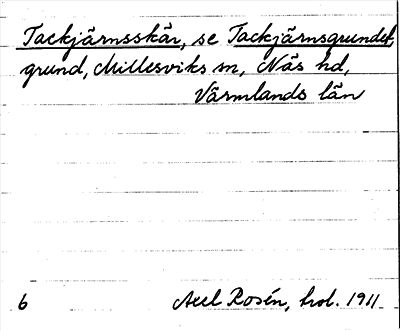 Tackjärnsskär, se Tackjärnsgrundet,
grund, Millesviks sn, Näs hd,
Värmlands län
6 Axel Rosén, hol. 1911